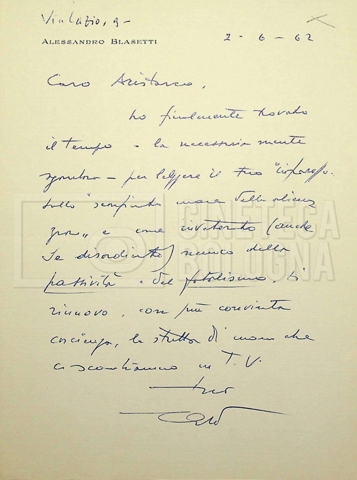 Via Lazio, 9
ALESSANDRO BLASETTI
2-6-62
Caro Aristarco,
ho finalmente trovato
il tempo e la necessaria mente
sgombra - per leggere il tuo
della
zione" e come inveterato (anche
se disordinato) nemico della
passività e del fatalismo, ti
rinnovo, con più convinta
coscienza, la stretta di mano che
ci scambiammo in T.V.
tuo
CINETECA
BOLOGNA